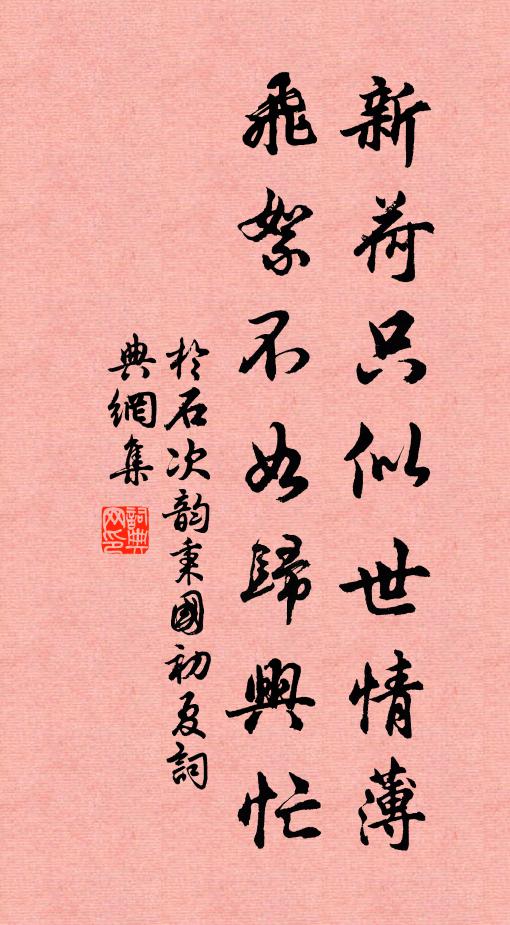 新荷只似世情薄
飛絮不如歸興忙
於石次韵秉國初夏詞
典網集
詞典
网印